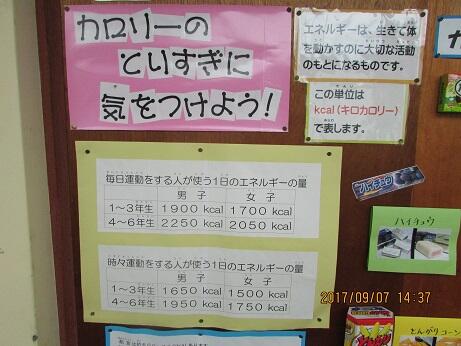 カロリーの
とりすぎに
気をつけよう!
エネルギーは、生きて体
を動かすのに大切な活動
のもとになるものです。
この単位は
kcal(キロカロリー)
で表します。
毎日運動をする人が使う1日のエネルギーの量
男子 女子
1~3年生 1900 kcal 1700 kcal
4~6年生 2250 kcal 2050 kcal
時々運動をする人が使う1日のエネルギーの量
男子 女子
1~3年生 1650 kcal 1500 kcal
4~6年生 1950 kcal 1750 kcal
ハイチュウ
ハイチュウ
とんがりコーン
2017/09/07 14:37